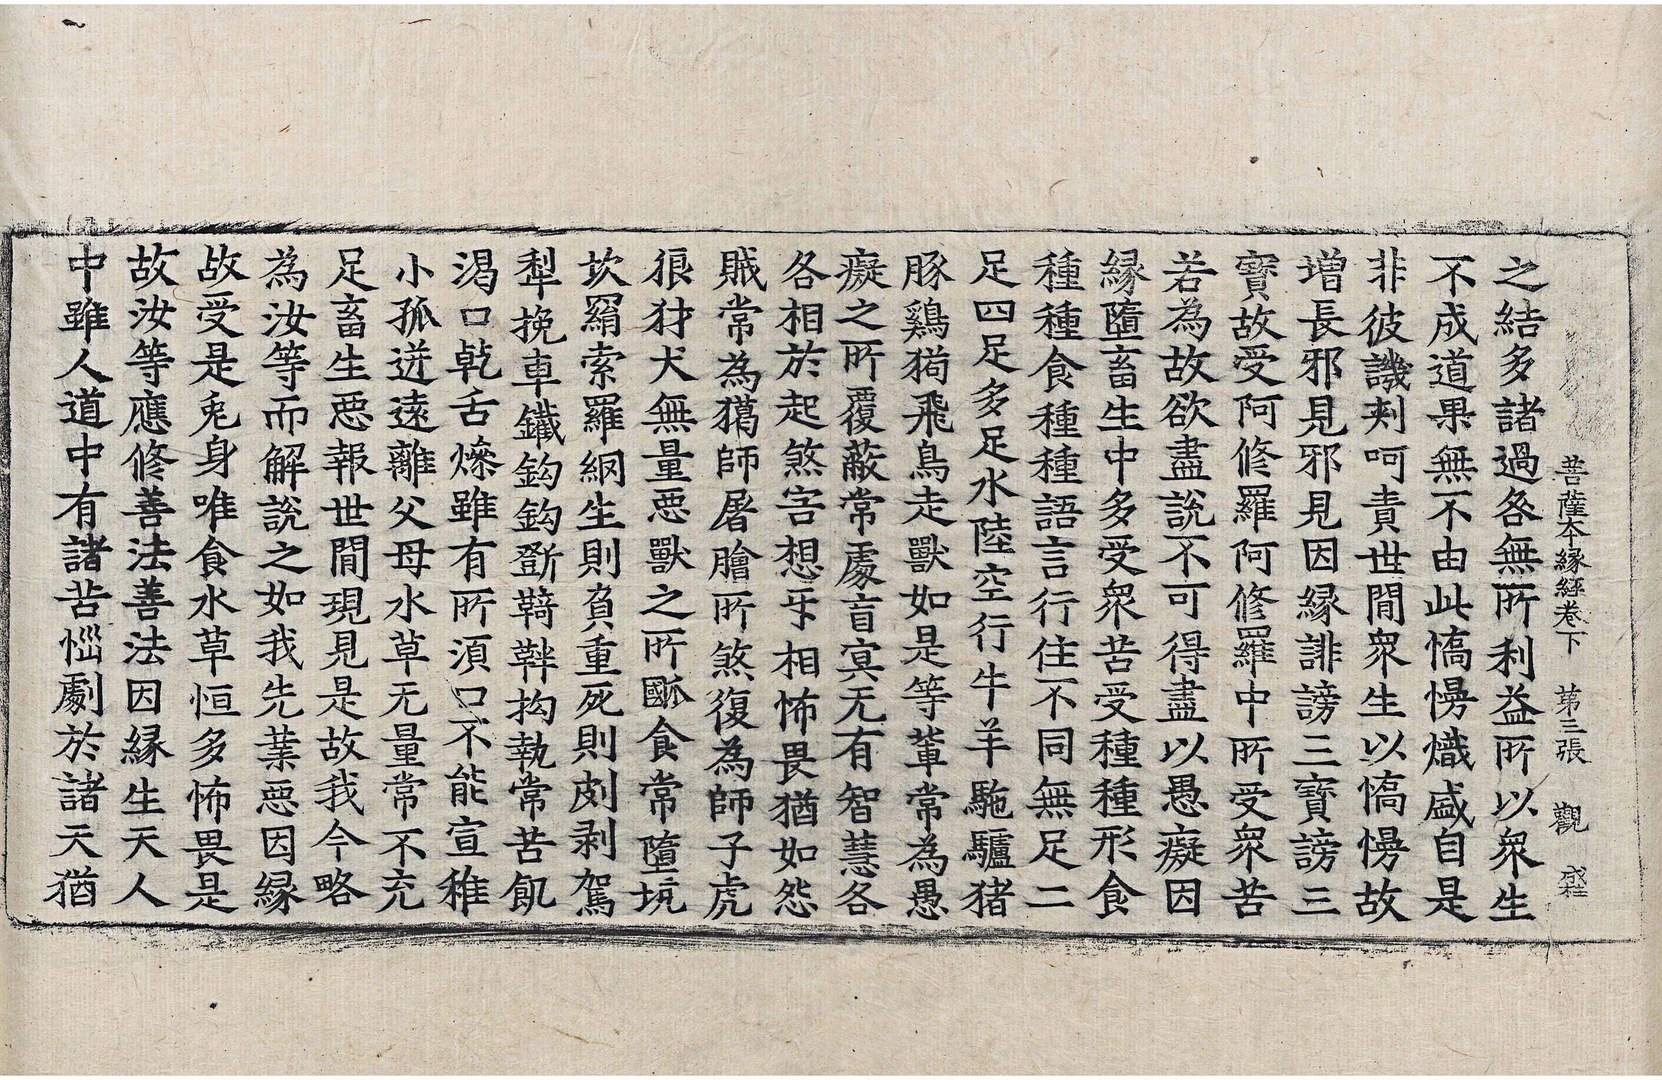 菩薩本縁經卷下　第三張　觀　成柱
之結多諸過各無所利益所以衆生
不成道果無不由此憍慢熾盛自是
非彼譏刾呵責世閒衆生以憍慢故
增長邪見邪見因縁誹謗三寶謗三
寶故受阿修羅阿修羅中所受衆苦
若為故欲盡說不可得盡以愚癡因
縁墮畜生中多受衆苦受種種形食
種種食種種語言行住不同無足二
足四足多足水陸空行牛羊駞驢猪
豚鷄狗飛鳥走獸如是等輩常為愚
癡之所覆蔽常處盲冥无有智慧各
各相於起煞害想㸦相怖畏猶如怨
賊常為獦師屠膾所煞復為師子虎
狼犲犬無量惡獸之所䶥食常墮坑
坎羂索羅網生則負重死則剥剥駕
犁挽車鐵鈎鈎斵鞿靽拘執常苦飢
渴口乾舌燥雖有所湏口不能宣稚
小孤迸遠離父母水草无量常不充
足畜生惡報世閒現見是故我今略
為汝等而解說之如我先業惡因縁
故受是兎身唯食水草恒多怖畏是
故汝等應修善法善法因縁生天人
中雖人道中有諸苦惱劇於諸天猶